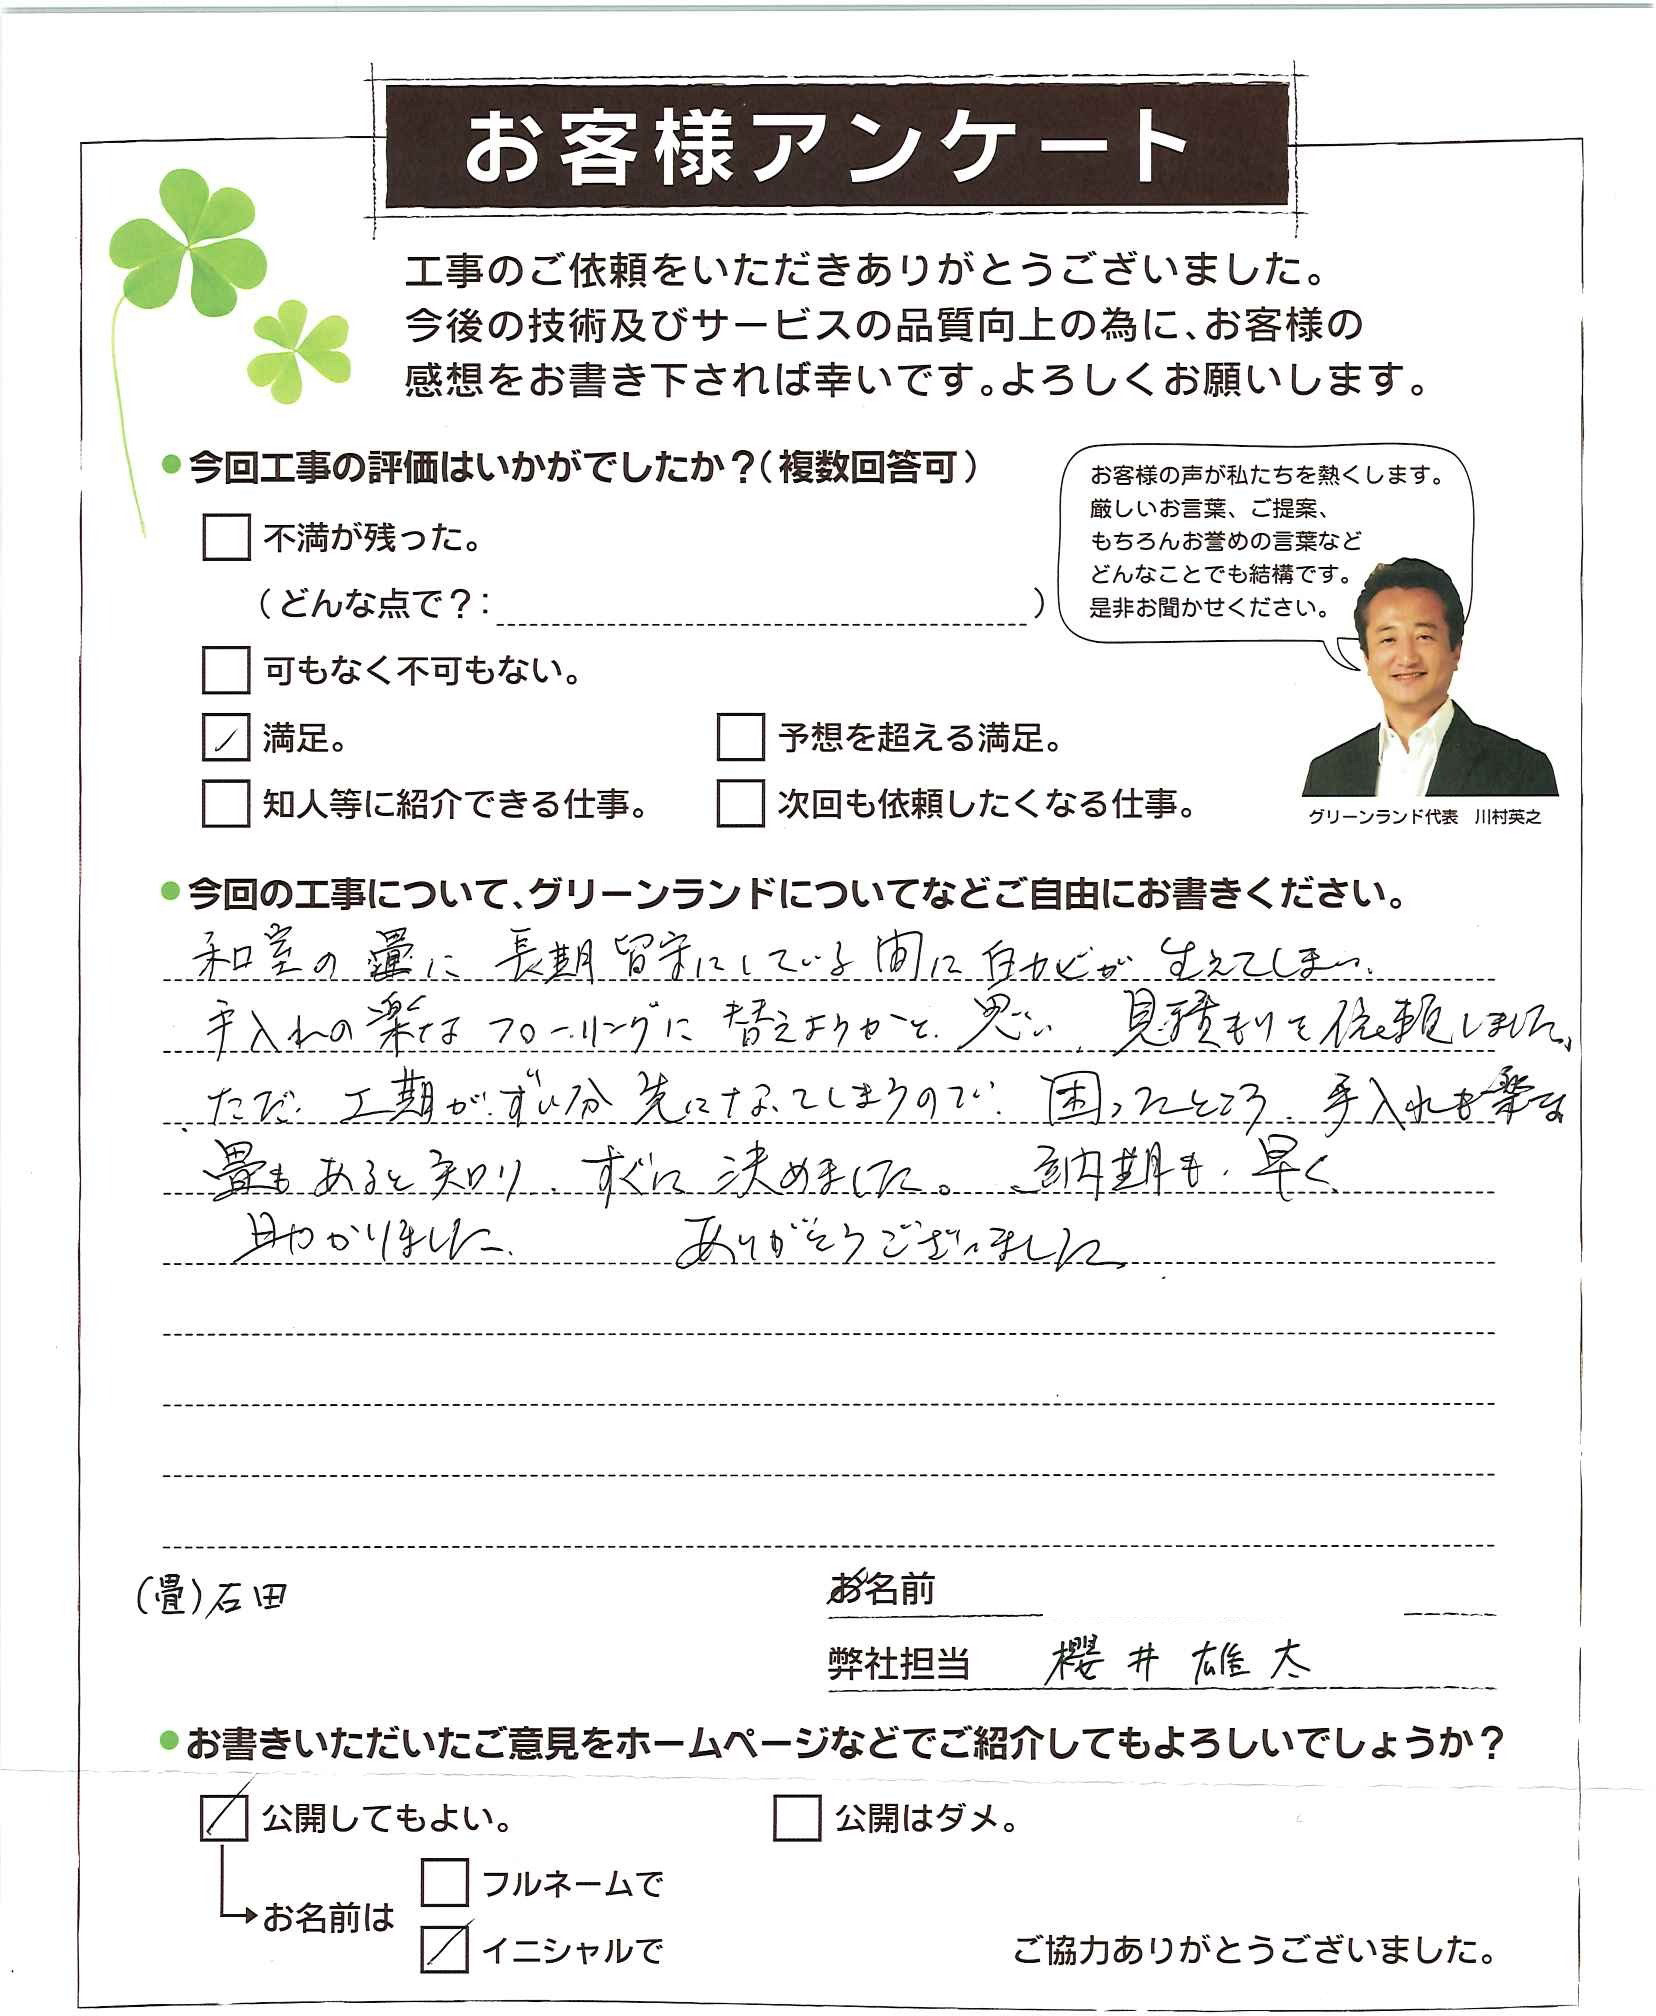 お客様アンケート
工事のご依頼をいただきありがとうございました。
今後の技術及びサービスの品質向上の為に、お客様の
感想をお書き下されば幸いです。よろしくお願いします。
●今回工事の評価はいかがでしたか？（複数回答可）
不満が残った。
（どんな点で？：　）
可もなく不可もない。
満足。
予想を超える満足。
知人等に紹介できる仕事。
次回も依頼したくなる仕事。
お客様の声が私たちを熱くします。
厳しいお言葉、ご提案、
もちろんお誉めの言葉など
どんなことでも結構です。
是非お聞かせください。
グリーンランド代表　川村英之
●今回の工事について、グリーンランドについてなどご自由にお書きください。
和室の畳に長期留守にしている間に白カビが生えてしまい、
手入れの楽なフローリングに替えようかと思い、見積もりを依頼しました。
ただ、工期がずい分先になってしまうので、困ったところ、手入れも楽な
畳もあると知り、すぐに決めました。納期も早く
助かりました。ありがとうございました
（畳）石田
お名前
弊社担当　櫻井雄太
●お書きいただいたご意見をホームページなどでご紹介してもよろしいでしょうか？
公開してもよい。
公開はダメ。
お名前は
フルネームで
イニシャルで
ご協力ありがとうございました。